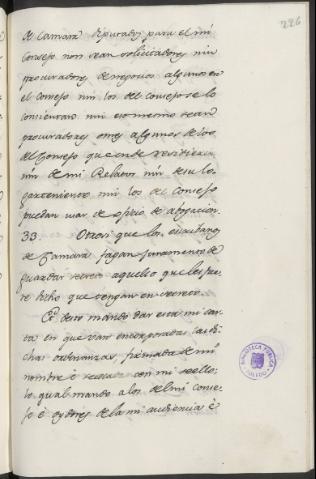 226
de Camara diputados para el mi
Consejo non sean solicitadores nin
procuradores de negocios algunos en
el Consejo nin los del Consejo se lo
consientan nin eso mesmo sean
procuradores otros algunos de los
del Consejo que ende residieren
nin de mi Relator nin de su lo-
garteniente nin los del Consejo
puedan usar de oficio de abogacion.
33. Otrosi que los escribanos
de Camara fagan juramento de
guardar secreto aquello que les fue-
re dicho que tengan en secreto.
E de esto mandé dar esta mi car-
ta en que van encorporadas las di-
chas ordenanzas, firmada de mi
nombre é sellada con mi sello:
lo qual mando a los del mi Conse-
jo é oydores de la mi audiencia é
BIBLIOTECA PUBLICA
TOLEDO